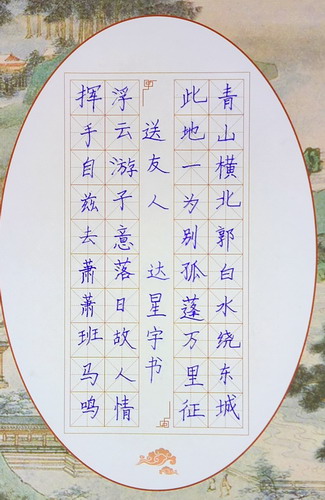 青山横北郭白水绕东城
此地一为别孤蓬万里征
送友人 达星宇书
浮云游子意落日故人情
挥手自兹去萧萧班马鸣